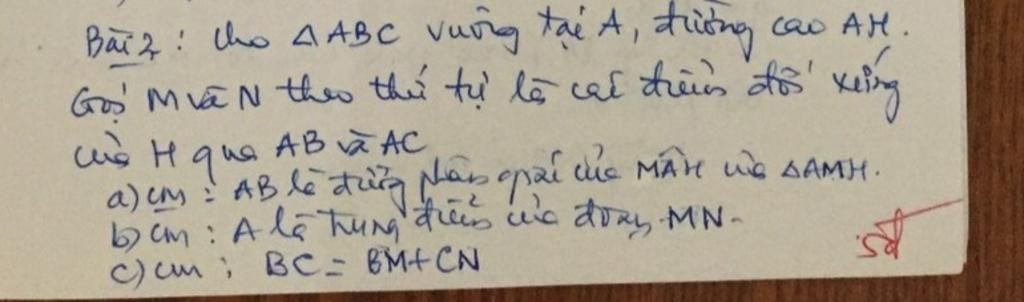 Bài 2: Cho △ABC vuông tại A, đường cao AH.
Gọi M và N theo thứ tự là các điểm đối xứng
của H qua AB và AC
a) CM: AB là đường phân giác của MÂH của △AMH.
b) CM: A là trung điểm của đoạn MN.
c) CM: BC = BM + CN
5đ